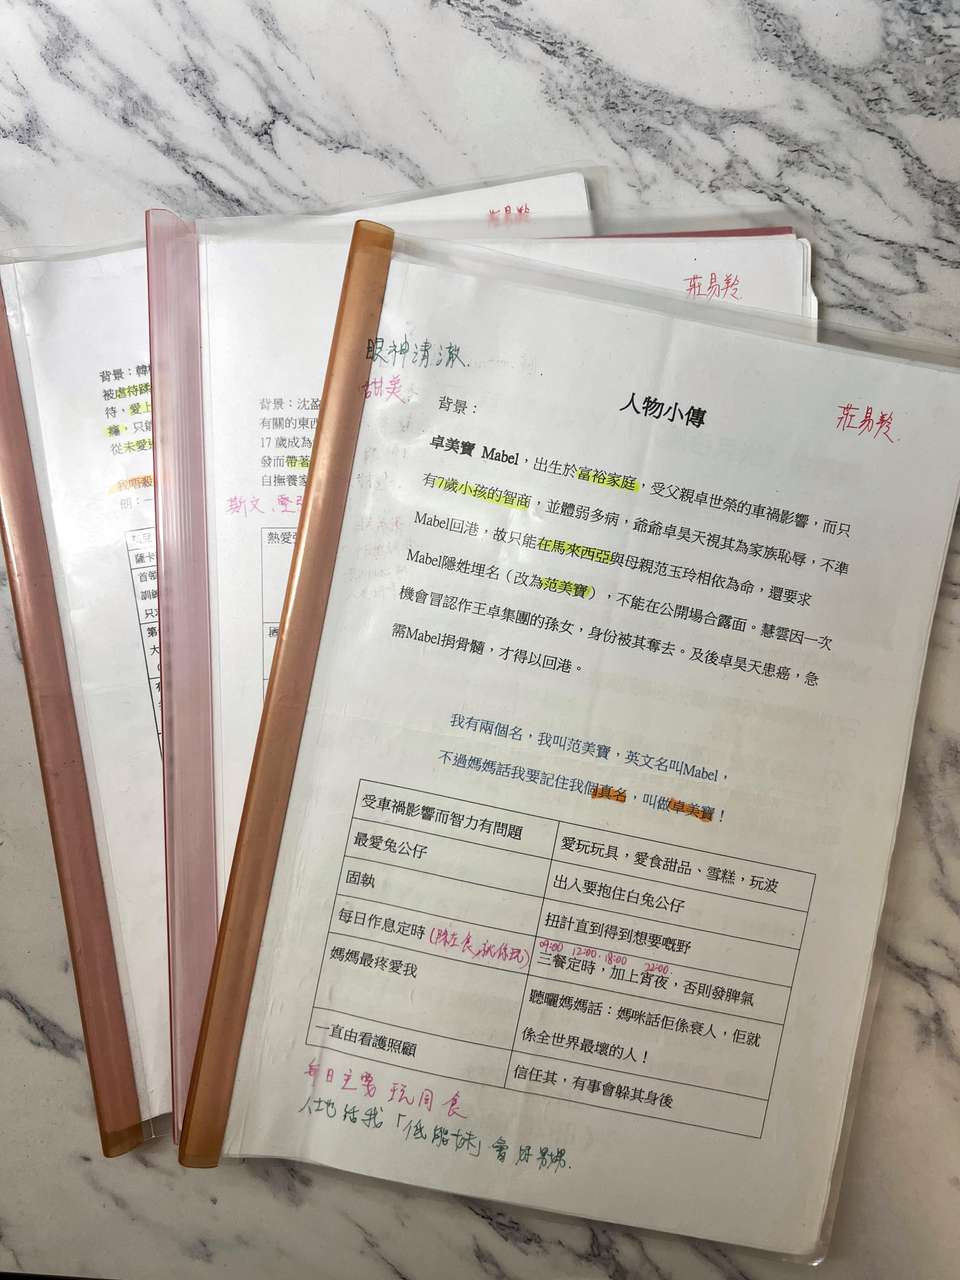 背景：韓
被虐待蹂
待，愛上
癮，只
從未愛
例：一
薩卡
首
訓
只
第
大
有
背景：沈盈
有關的東西
17 歲成為
發而帶著
自撫養家
斯文、堅
熱愛
莊易羚
莊易羚
眼神清澈.
甜美
人物小傳
莊易羚.
背景：
卓美寶 Mabel，出生於富裕家庭，受父親卓世榮的車禍影響，而只
有7歲小孩的智商，並體弱多病，爺爺卓昊天視其為家族恥辱，不準
Mabel回港，故只能在馬來西亞與母親范玉玲相依為命，還要求
Mabel隱姓埋名（改為范美寶），不能在公開場合露面。慧雲因一次
機會冒認作王卓集團的孫女，身份被其奪去。及後卓昊天患癌，急
需Mabel捐骨髓，才得以回港。
我有兩個名，我叫范美寶，英文名叫Mabel，
不過媽媽話我要記住我個真名，叫做卓美寶！
受車禍影響而智力有問題
愛玩玩具，愛食甜品、雪糕，玩波
最愛兔公仔
出入要抱住白兔公仔
固執
扭計直到得到想要嘅野
每日作息定時 (除左食，就係玩)
09:00 12:00. 18:00 22:00.
三餐定時，加上宵夜，否則發脾氣
媽媽最疼愛我
聽曬媽媽話：媽咪話佢係衰人，佢就
係全世界最壞的人！
一直由看護照顧
信任其，有事會躲其身後
每日主要 玩同食
人地話我「低能妹」會好勞嬲.